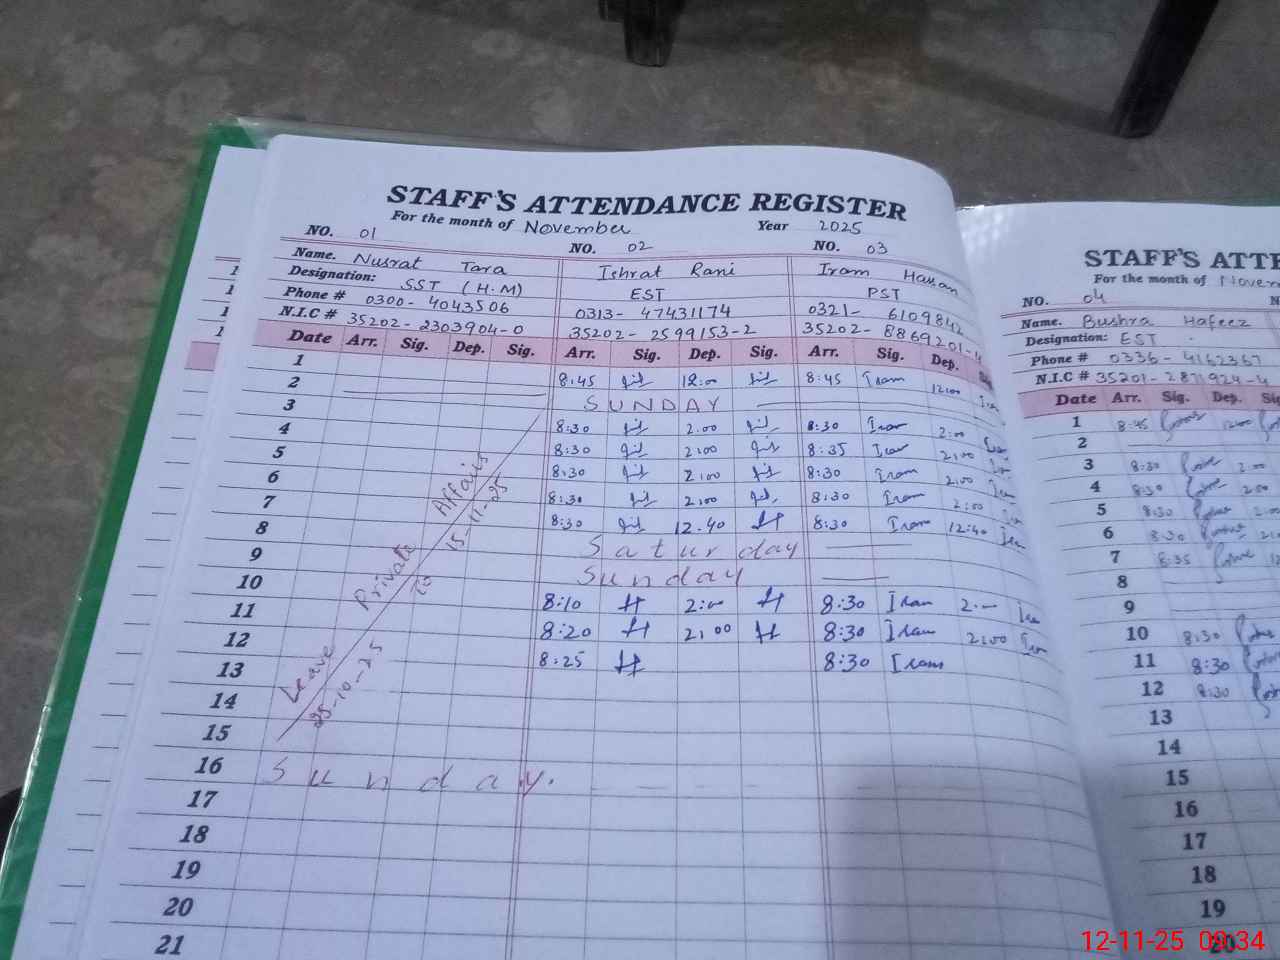 STAFF'S ATTENDANCE REGISTER
For the month of November Year 2025
NO. 01 NO. 02 NO. 03
Name. Nusrat Tara Ishrat Rani Iram Hassan
Designation: SST (H.M) EST PST
Phone # 0300-4043506 0313-47431174 0321-6109842
N.I.C # 35202-2303904-0 35202-2599153-2 35202-8869201-4
Date Arr. Sig. Dep. Sig. Arr. Sig. Dep. Sig. Arr. Sig. Dep.
1 8:45 12:00 8:45 Iram 12:00
2 SUNDAY
3 8:30 2:00 8:30 Iram 2:00
4 8:30 2:00 8:35 Iram 2:00
5 8:30 2:00 8:30 Iram 2:00
6 8:30 2:00 8:30 Iram 2:00
7 8:30 12:40 8:30 Iram 12:40
8 Saturday
9 Sunday
10 8:10 2:00 8:30 Iram 2
11 8:20 2:00 8:30 Iram 2:00
12 8:25 8:30 Iram
13
14
15
16 Sunday.
17
18
19
20
21
Leave Private Affairs
25-10-25 To 15-11-25
STAFF'S ATTE
For the month of Novem
NO. 04
Name. Bushra Hafeez
Designation: EST
Phone # 0336-4162367
N.I.C # 35201-2871924-4
Date Arr. Sig. Dep.
1 8:45 12:00
2
3 8:30 2:00
4 8:30 2:00
5 8:30 2:00
6 8:30
7 8:35
8
9
10 8:30
11 8:30
12 8:30
13
14
15
16
17
18
19
20
12-11-25 09:34